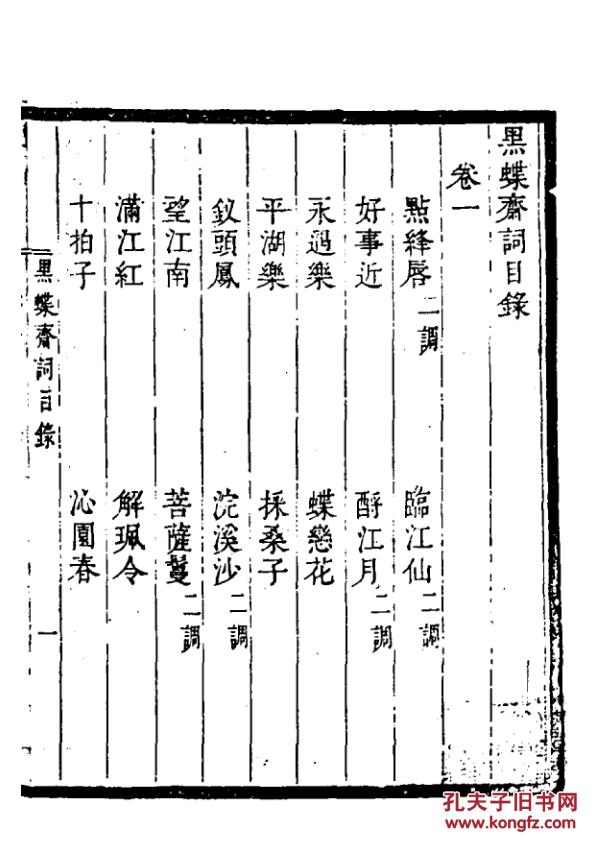 黑蝶齋詞目錄
卷一
點絳唇二調 臨江仙二調
好事近 酹江月二調
永遇樂 蝶戀花
平湖樂 採桑子
釵頭鳳 浣溪沙二調
望江南 菩薩蠻二調
滿江紅 解珮令
十拍子 沁園春
黑蝶齋詞目錄 一
孔夫子旧书网
www.kongfz.com